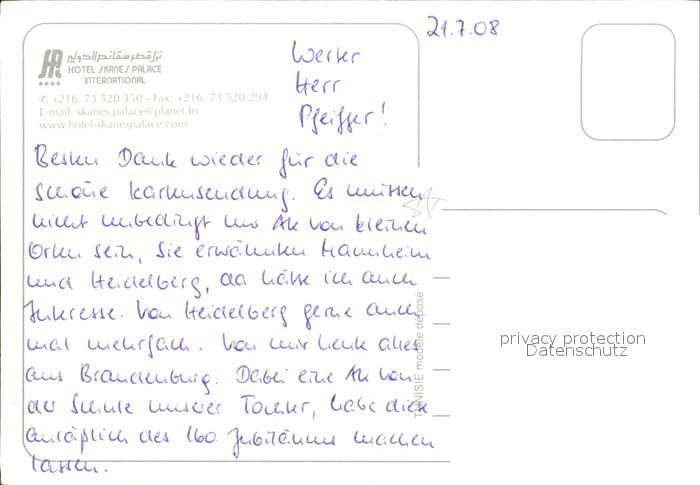 21.7.08
نزل قصر سقانص الدولي
HOTEL SKANES PALACE
INTERNATIONAL
✆ +216. 73 520 350 - Fax: +216. 73 520 294
E-mail: skanes.palace@planet.tn
www.hotel-skanespalace.com
Werter
Herr
Pfeiffer!
Besten Dank wieder für die
schöne Kartensendung. Es müssen
nicht unbedingt nur AK von kleinen
Orten sein, Sie erwähnten Mannheim
und Heidelberg, da hätte ich auch
Interesse. Von Heidelberg gerne auch
mal mehrfach. Von mir heute alles
aus Brandenburg. Dabei eine AK von
der Schule unserer Tochter, habe diese
anläßlich des 160 Jubiläums machen
lassen.
TUNISIE modèle déposé
privacy protection
Datenschutz